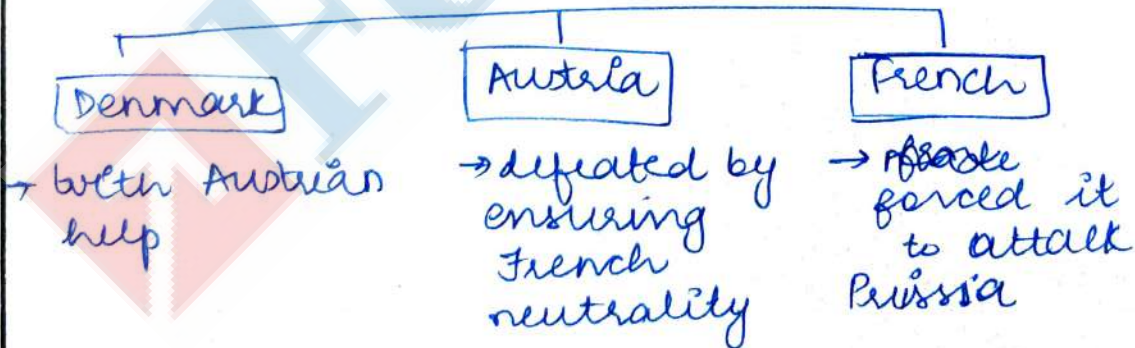 Denmark
→ with Austrian
help
Austria
→ defeated by
ensuring
French
neutrality
French
→
forced it
to attack
Prussia